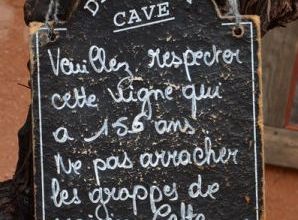 CAVE
Veuillez respecter
cette vigne qui
a 156 ans.
Ne pas arracher
les grappes de
Cette